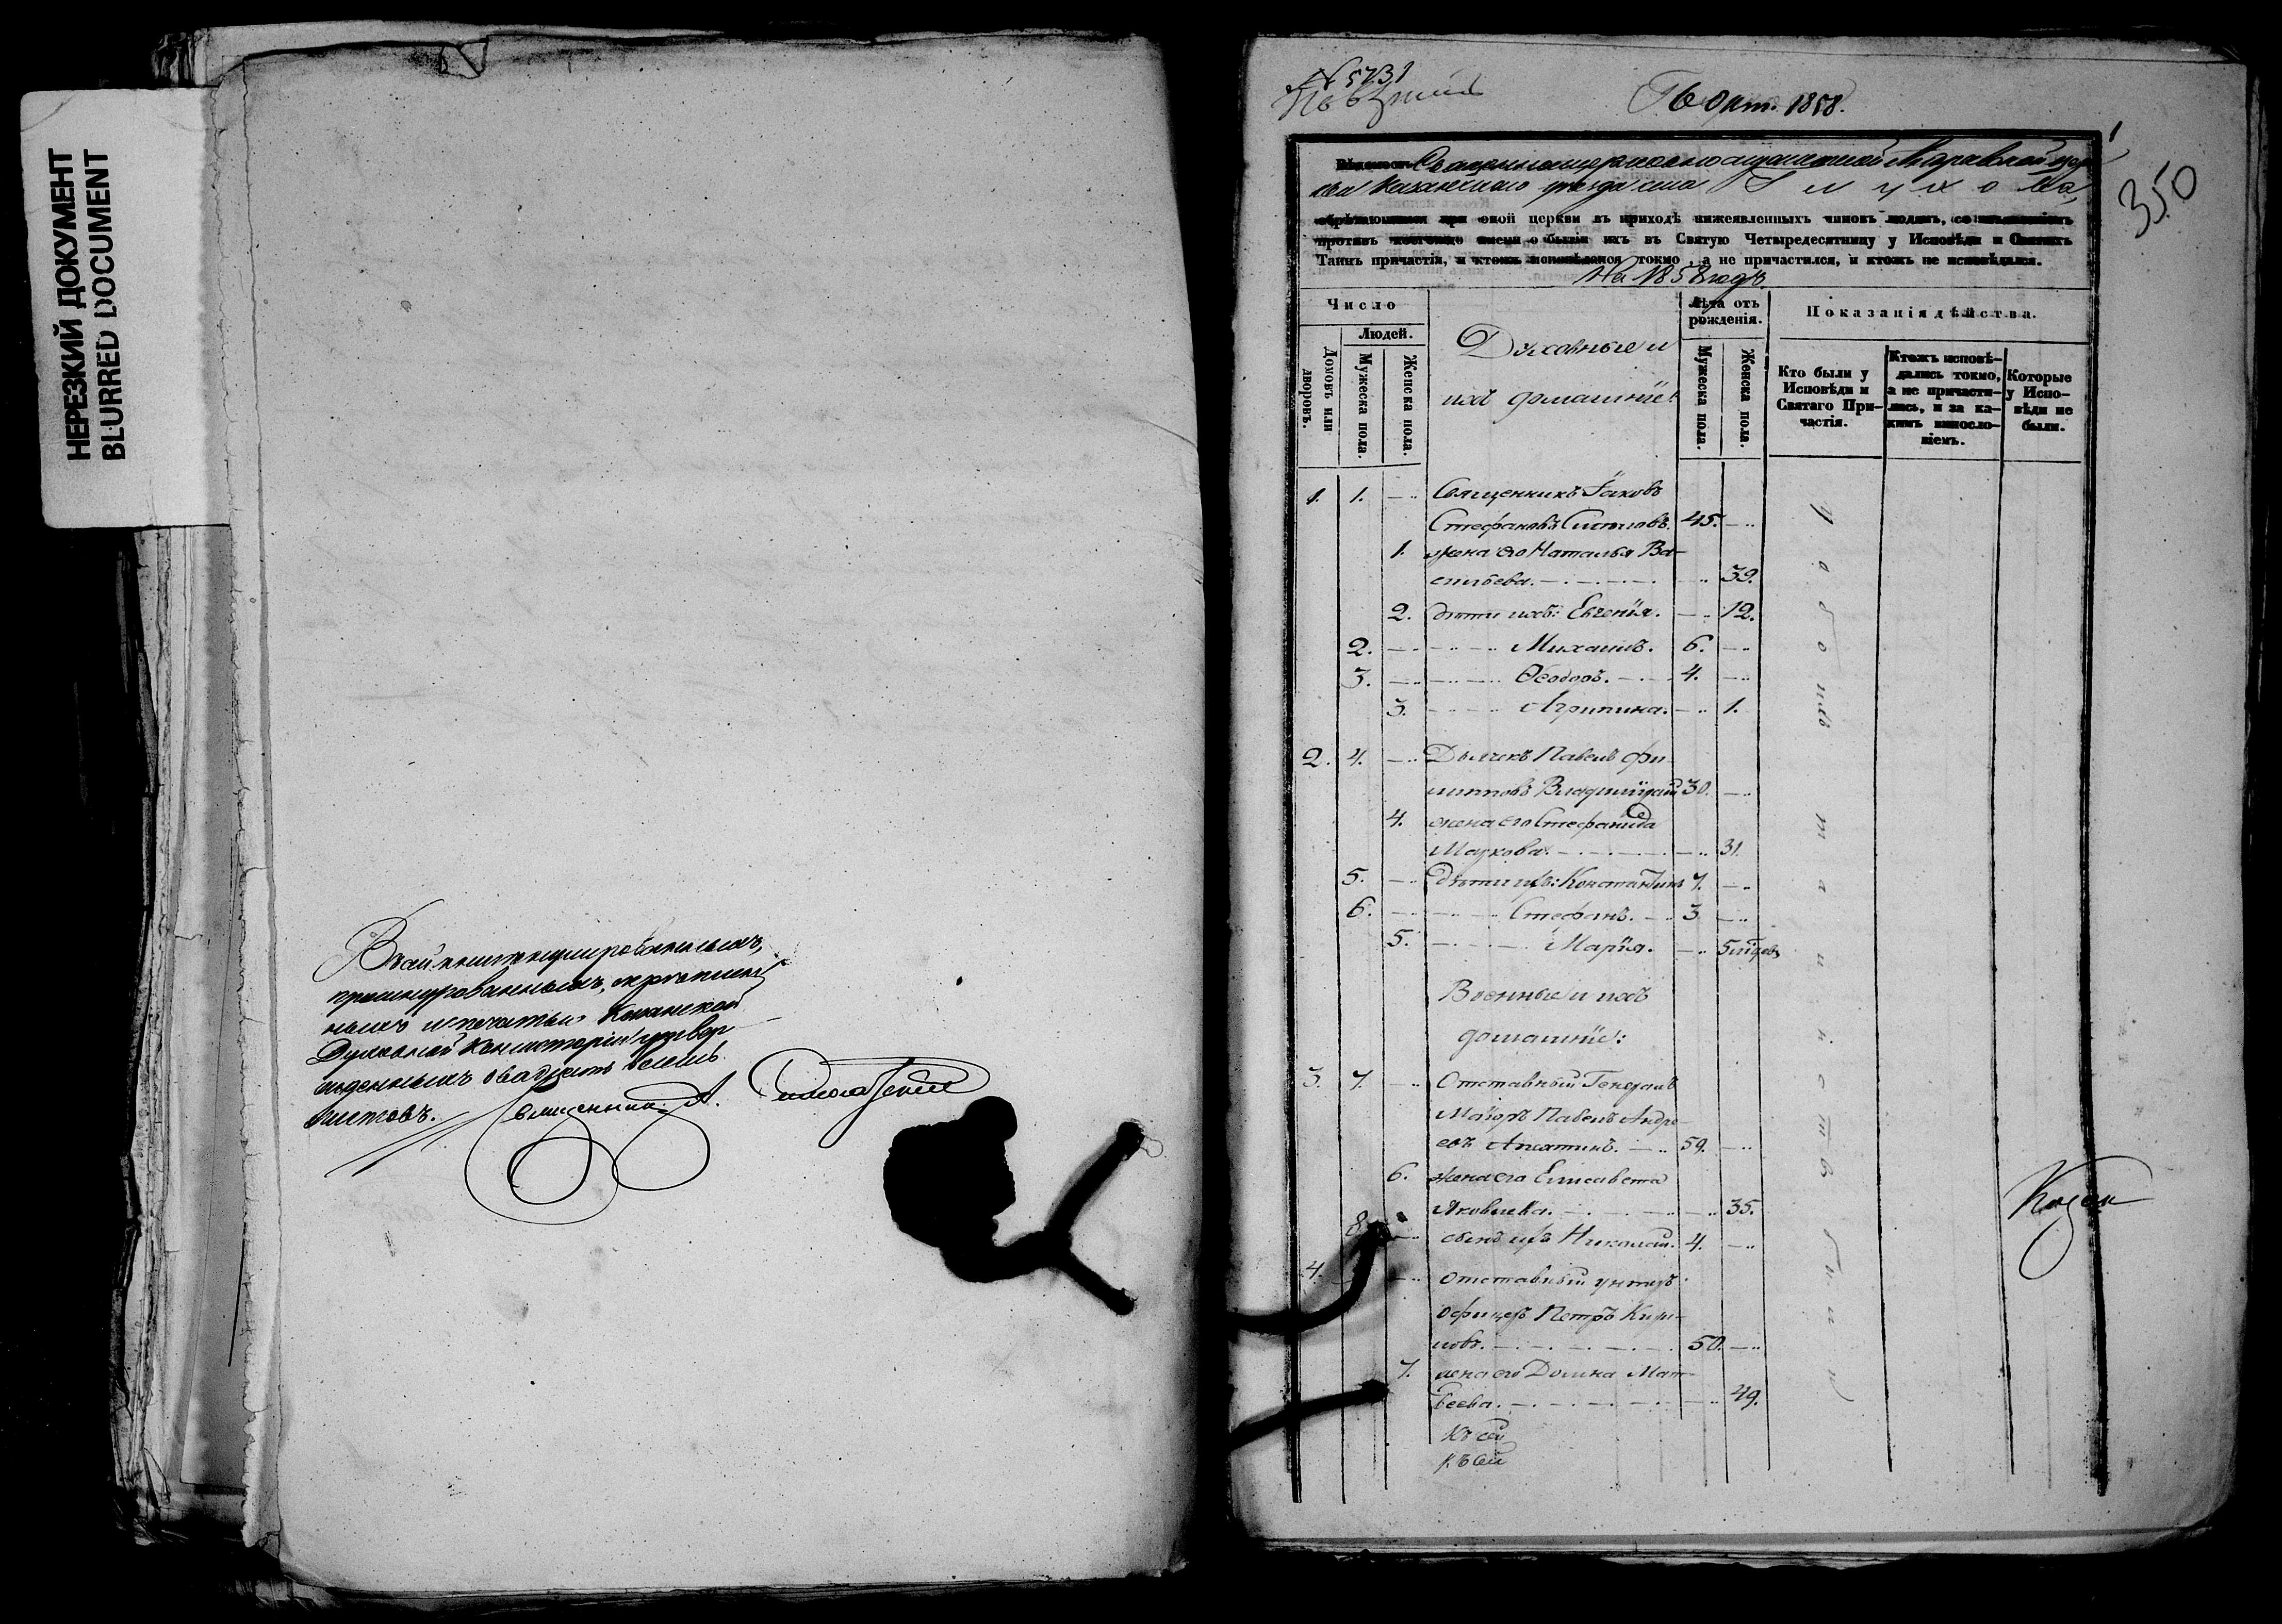 НЕРЕЗКИЙ ДОКУМЕНТ
BLURRED DOCUMENT
Въ сей книге нумерованныхъ,
прошнурованныхъ, скреплен
ныхъ и печатью Казанской
Духовной Консисторіи утвер
жденныхъ двадцать восемь
листовъ.
Священникъ А.
№ 5731
6 Окт. 1858.
1
350
Вѣдомость Священноцерковнослужителей церк
ви Казанскаго уѣзда села
обрѣтающимся при оной церкви въ приходѣ нижеявленныхъ чиновъ людямъ, со изъявленіемъ
противъ коегождо имени о бытіи ихъ въ Святую Четыредесятницу у Исповѣди и Святыхъ
Таинъ причастія, и ктожъ исповѣдался токмо, а не причастился, и ктожъ не исповѣдался.
На 1858 годъ
Число
Людей.
Домовъ или дворовъ.
Мужеска пола.
Женска пола.
Духовные и
ихъ домашніе:
Лѣта отъ рожденія.
Мужеска пола.
Женска пола.
Показанія дѣйства.
Кто были у Исповѣди и Святаго Причастія.
Ктожъ исповѣдались токмо, а не причастились, и за какимъ винословіемъ.
Которые у Исповѣди не были.
1. 1. Священникъ Іаковъ
Стефановъ 45.
1. жена его Наталья Ва-
сильева. 39.
2. дѣти ихъ: Евгенія. 12.
2. Михаилъ. 6.
3. Ѳеодоръ. 4.
3. Агрипина. 1.
2. 4. Дьячекъ Павелъ Фи-
липповъ 30.
4. жена его Стефанида
Маркова. 31.
5. дѣти ихъ: Константинъ 7.
6. Стефанъ. 3
5. Марія. 5
Военные и ихъ
домашніе:
3. 7. Отставный Генералъ
Маіоръ Павелъ Андре-
евъ 59.
6. жена его Елисавета
Яковлева. 35.
8. сынъ ихъ Николай. 4.
4. отставный унтеръ
офицеръ Петръ Кири-
ловъ. 50.
7. жена его Домна Мат-
веева. 49.
Къ сей
Къ сей